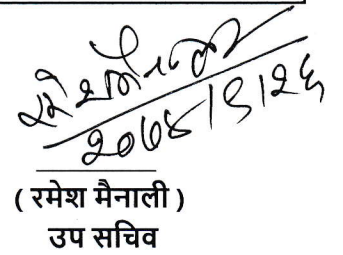 २०७४/९/२६
( रमेश मैनाली )
उप सचिव